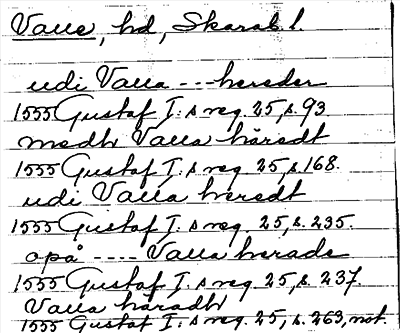 Valle, hd, Skarab. l.
udi Valla --- hereder
1555 Gustaf I:s reg. 25, s. 93
medh Valla häredt
1555 Gustaf I:s reg. 25, s. 168.
udi Valla heredt
1555 Gustaf I:s reg. 25, s. 235.
opå ---- Valla herade
1555 Gustaf I:s reg. 25, s. 237.
Valla häradh
1555 Gustaf I:s reg. 25, s. 263, not.